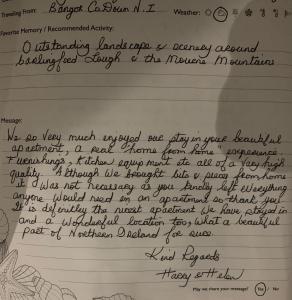 Traveling From: Bangor Co Down N.I Weather:
Favorite Memory / Recommended Activity:
Outstanding landscape & scenery around
Carlingford Lough & the Mourne Mountains
Message:
We so very much enjoyed our stay in your beautiful
apartment, a real "home from home" experience.
Furnishings, Kitchen equipment etc all of a very high
quality. Although we brought bits & pieces from home
it was not necessary as you kindly left everything
anyone would need in an apartment so thank you
It is definitley the nicest apartment we have stayed in
and a wonderful location too, what a beautiful
part of Northern Ireland for sure
Kind Regards
Harry & Helen
May we share your message? Yes / No